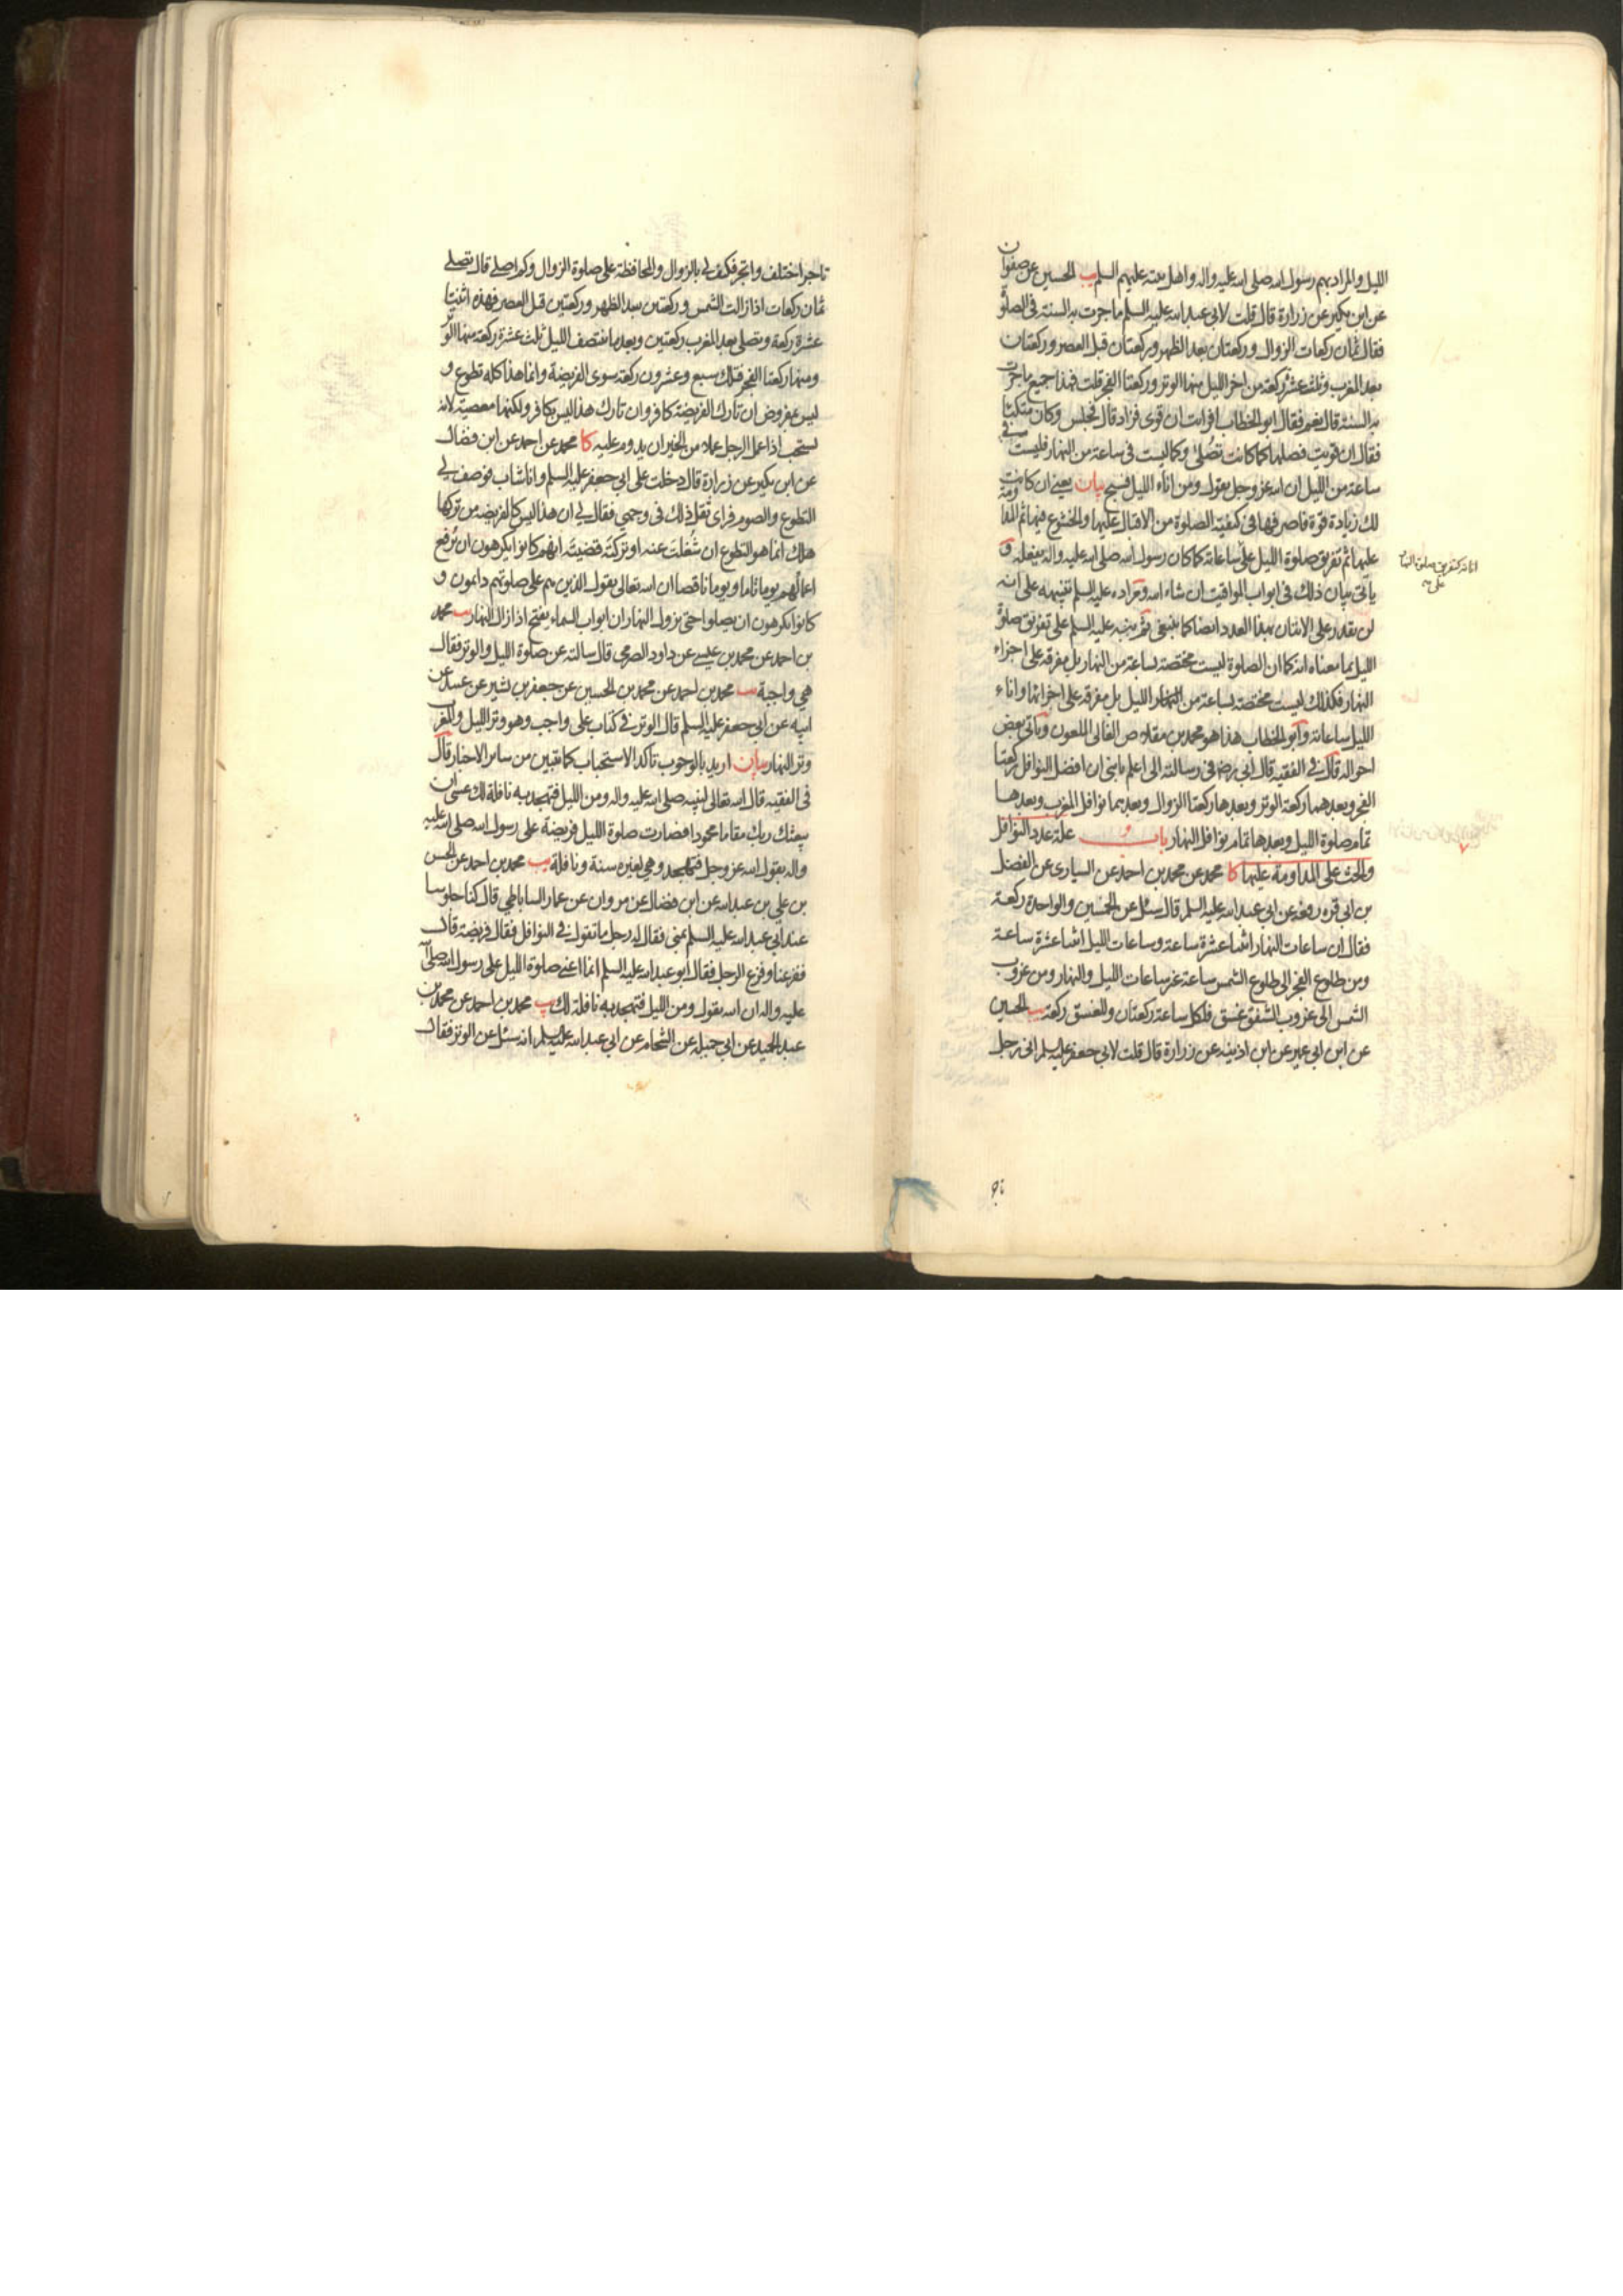 الليل والمراد بهم رسول الله صلى الله عليه واله واهل بيته عليهم السلم يب الحسين عن صفوان
عن ابن بكير عن زرارة قال قلت لابي عبد الله عليه السلم ما جرت به السنة فى الصلوة
فقال ثمان ركعات الزوال وركعتان بعد الظهر وركعتان قبل العصر وركعتان
بعد المغرب وثلث عشرة ركعة من اخر الليل منها الوتر وركعتا الفجر قلت فهذا جميع ما جرت
به السنة قال نعم فقال ابو الخطاب افرايت ان قوى فزاد قال فجلس وكان متكئا
فقال ان قويت فصلها كما كانت تصلى وكما ليست فى ساعة من النهار فليست فى
ساعة من الليل ان الله عز وجل يقول ومن اناء الليل فسبح بيان يعنى ان كانت
لك زيادة قوة فاصرفها فى كيفية الصلوة من الاقبال عليها والخشوع فيها ثم المداومة
عليها ثم تفريق صلوة الليل على ساعاته كما كان رسول الله صلى الله عليه واله يفعله و
ياتى بيان ذلك فى ابواب المواقيت ان شاء الله ومراده عليه السلم تنبيهه على انه
لن يقدر على الاتيان بهذا العدد ايضا كما ينبغى ثم نبه عليه السلم على تفريق صلوة
الليل بما معناه انه كما ان الصلوة ليست مختصة بساعة من النهار بل مفرقة على اجزاء
النهار فكذلك ليست مختصة بساعة من الليل بل مفرقة على اجزائها واناء
الليل ساعاته وابو الخطاب هذا هو محمد بن مقلاص الغالى الملعون وياتى بعض
احواله قال فى الفقيه قال ابى رضه فى رسالته الى اعلم يا بنى ان افضل النوافل ركعتا
الفجر وبعدهما ركعة الوتر وبعدها ركعتا الزوال وبعدهما نوافل المغرب وبعدها
تمام صلوة الليل وبعدها تمام نوافل النهار باب علة عدد النوافل
والحث على المداومة عليها كا محمد عن محمد بن احمد عن السيارى عن الفضل
بن ابى قره رفعه عن ابى عبد الله عليه السلم قال سئل عن الخمسين والواحدة ركعة
فقال ان ساعات النهار اثنتا عشرة ساعة وساعات الليل اثنتا عشرة ساعة
ومن طلوع الفجر الى طلوع الشمس ساعة غير ساعات الليل والنهار ومن غروب
الشمس الى غروب الشفق غسق فلكل ساعة ركعتان وللغسق ركعة يب الحسين
عن ابن ابى عمير عن ابن اذينه عن زرارة قال قلت لابى جعفر عليه السلم انى رجل
تاجر اختلف واتجر فكيف لى بالزوال والمحافظة على صلوة الزوال وكم اصلى قال تصلى
ثمان ركعات اذا زالت الشمس وركعتين بعد الظهر وركعتين قبل العصر فهذه اثنتا
عشرة ركعة وتصلى بعد المغرب ركعتين وبعد ما ينتصف الليل ثلث عشرة ركعة منها الوتر
ومنها ركعتا الفجر فتلك سبع وعشرون ركعة سوى الفريضة وانما هذا كله تطوع و
ليس بمفروض ان تارك الفريضة كافر وان تارك هذا ليس بكافر ولكنها معصية لانه
يستحب اذا عمل الرجل عملا من الخير ان يدوم عليه كا محمد عن احمد عن ابن فضال
عن ابن بكير عن زرارة قال دخلت على ابى جعفر عليه السلم وانا شاب فوصف لى
التطوع والصوم فراى ثقل ذلك فى وجهى فقال لى ان هذا ليس كالفريضة من تركها
هلك انما هو التطوع ان شغلت عنه او تركته قضيته انهم كانوا يكرهون ان ترفع
اعمالهم يوما تاما ويوما ناقصا ان الله تعالى يقول الذين هم على صلوتهم دائمون و
كانوا يكرهون ان يصلوا حتى يزول النهار ان ابواب السماء يفتح اذا زال النهار يب محمد
بن احمد عن محمد بن عيسى عن داود الصرمى قال سالته عن صلوة الليل والوتر فقال
هى واجبة يب محمد بن احمد عن محمد بن الحسين عن جعفر بن بشير عن عبيد عن
ابيه عن ابى جعفر عليه السلم قال الوتر فى كتاب على واجب وهو وتر الليل والمغرب
وتر النهار بيان اريد بالوجوب تاكد الاستحباب كما تبين من ساير الاخبار قال
فى الفقيه قال الله تعالى لنبيه صلى الله عليه واله ومن الليل فتهجد به نافلة لك عسى ان
يبعثك ربك مقاما محمودا فصارت صلوة الليل فريضة على رسول الله صلى الله عليه
واله بقول الله عز وجل فتهجد وهى لغيره سنة ونافلة يب محمد بن احمد عن الحسن
بن على بن عبد الله عن ابن فضال عن مروان عن عمار الساباطى قال كنا جلوسا
عند ابى عبد الله عليه السلم بمنى فقال له رجل ما تقول فى النوافل فقال فريضة قال
ففزعنا وفزع الرجل فقال ابو عبد الله عليه السلم انما اعنى صلوة الليل على رسول الله صلى الله
عليه واله ان الله يقول ومن الليل فتهجد به نافلة لك يب محمد بن احمد عن محمد بن
عبد الحميد عن ابى جميله عن الشحام عن ابى عبد الله عليه السلم انه سئل عن الوتر فقال